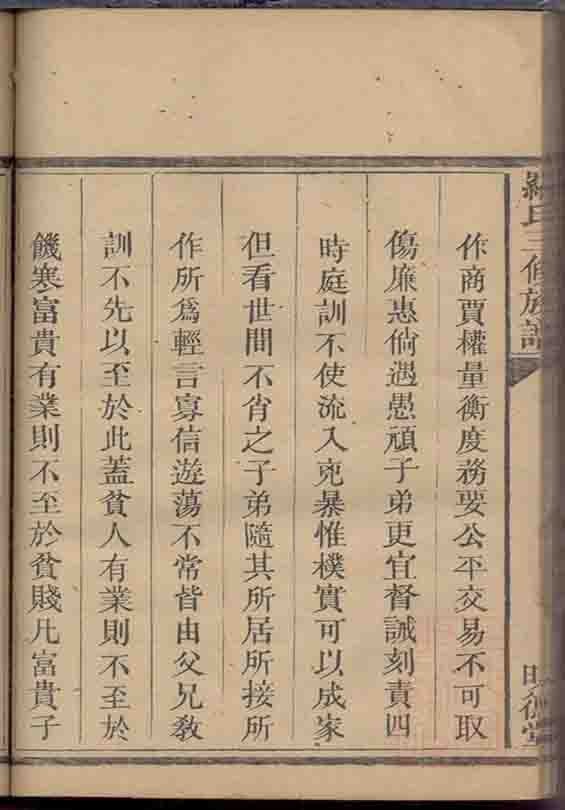 氏三修族譜
作商賈權量衡度務要公平交易不可取
傷廉惠倘遇愚頑子弟更宜督誡刻責四
時庭訓不使流入兇暴惟樸實可以成家
但看世間不肖之子弟隨其所居所接所
作所為輕言寡信遊蕩不常皆由父兄敎
訓不先以至於此蓋貧人有業則不至於
饑寒富貴有業則不至於貧賤凡富貴子